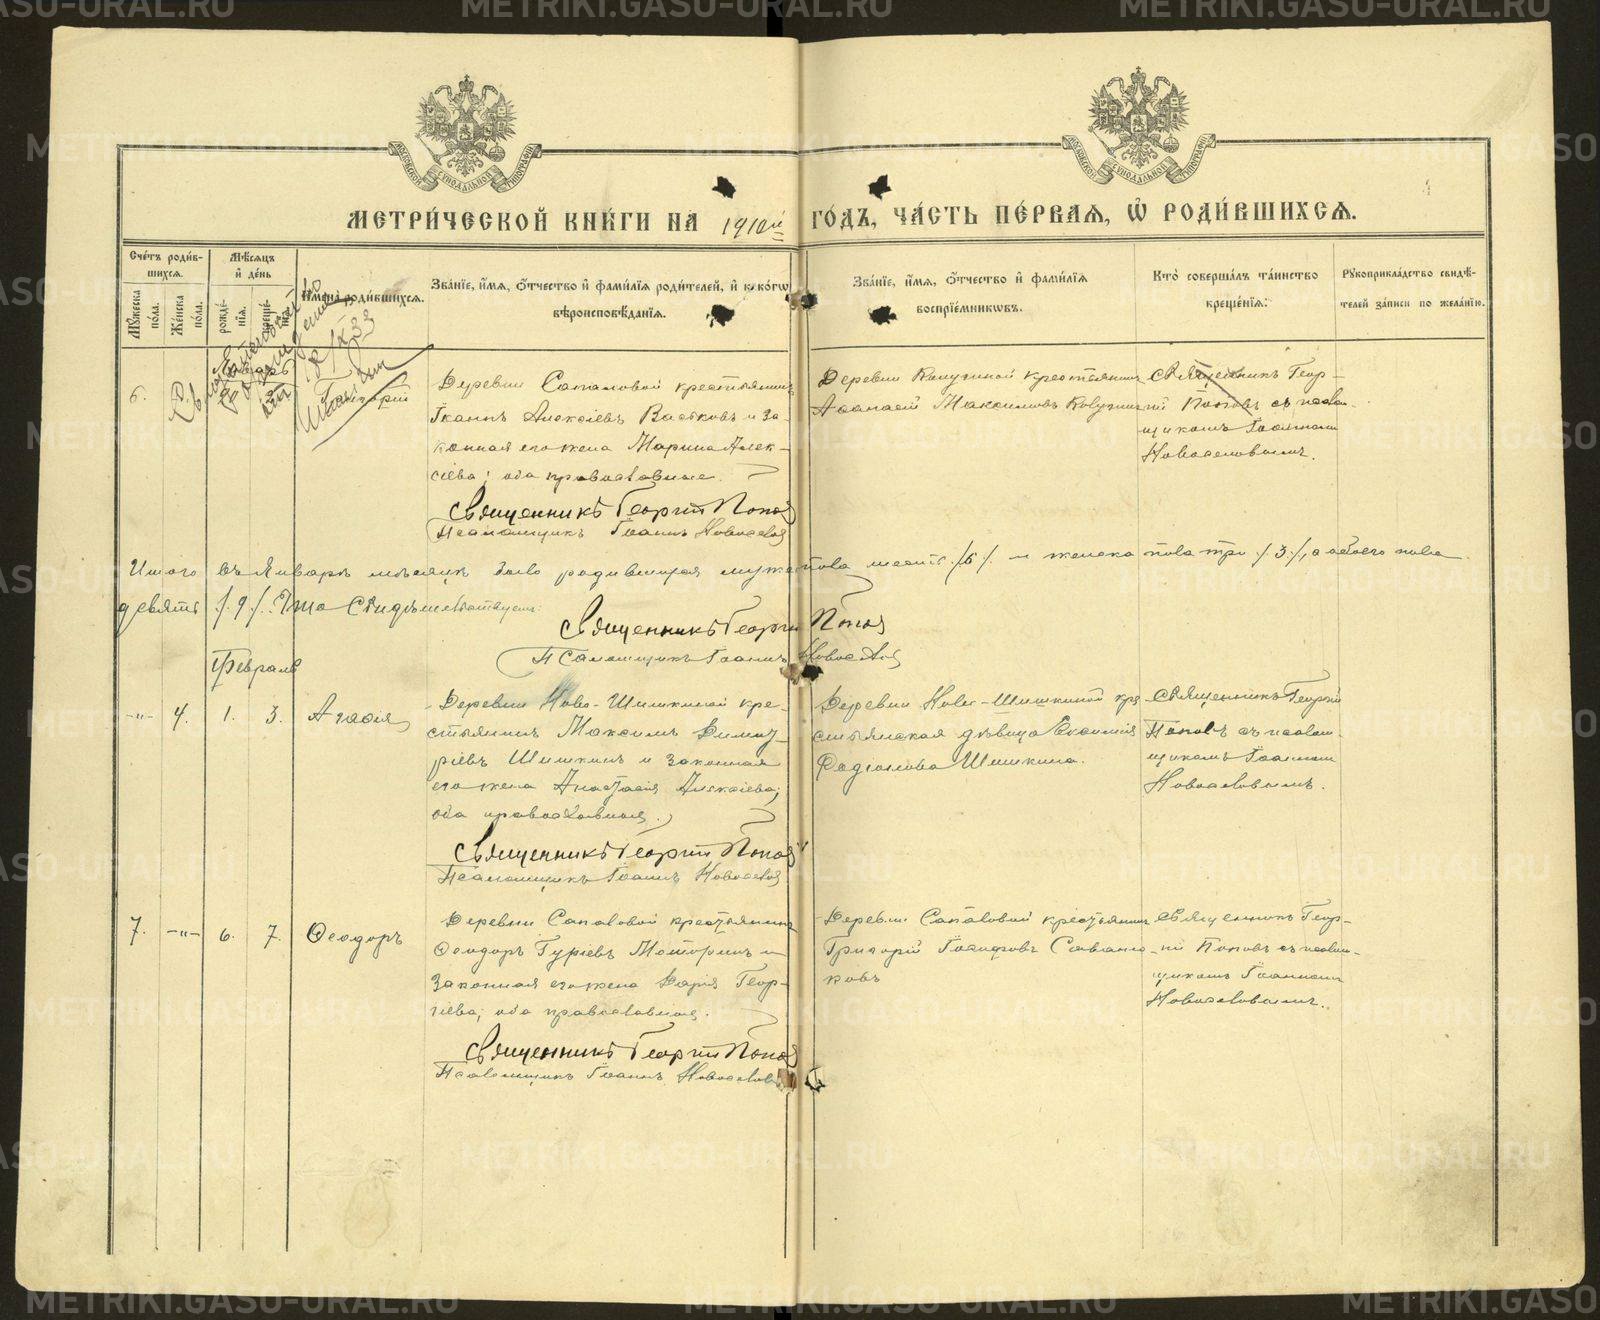 METRIKI.GASO-URAL.RU
МОСКОВСКОЙ СѴНОДАЛЬНОЙ ТИПОГРАФІИ
МОСКОВСКОЙ СѴНОДАЛЬНОЙ ТИПОГРАФІИ
МЕТРИ́ЧЕСКОЙ КНИ́ГИ НА 1910й ГО́ДЪ, ЧА́СТЬ ПЕ́РВАЯ, Ѡ҆ РОДИ́ВШИХСЯ.
Сче́тъ роди́в-
шихся.
Му́жеска по́ла.
Же́нска по́ла.
Мѣ́сяцъ
и҆ де́нь
рожде́-
нїя.
креще́-
нїя.
И҆мена̀ роди́вшихся.
Зва́нїе, и҆́мя, ѻ҆́тчество и҆ фами́лїя роди́телей, и҆ како́гѡ
вѣроисповѣ́данїя.
Зва́нїе, и҆́мя, ѻ҆́тчество и҆ фами́лїя
воспрїе́мникѡвъ.
Кто̀ соверша́лъ та́инство
креще́нїя:
Рукоприкла́дство свидѣ́-
телей за́писи по жела́нїю.
6.
Григорій
Деревни Сапаловой крестьянинъ
Іоаннъ Алексіевъ и За-
конная его жена Марина Алек-
сіева; оба православные.
Священникъ Георгій Попов
Псаломщикъ Іоаннъ Новоселов
Деревни крестьянинъ
Аѳанасій Максимовъ
Священникъ Геор-
гій Поповъ съ псалом-
щикомъ Іоанномъ
Новоселовымъ.
Итого въ Январѣ мѣсяцѣ было родившихся мужска пола шесть /6/ и женска пола три /3/, а обоего пола
девять /9/. Что Свидѣтельствуемъ:
Священникъ Георгій Попов
Псаломщикъ Іоаннъ Новоселов
Февраль
-"- 4. 1. 3. Агаѳія
Деревни Ново-Шишкиной кре-
стьянинъ Максимъ Димит-
ріевъ Шишкинъ и Законная
его жена Анастасія Алексіева;
оба православные.
Священникъ Георгій Попов
Псаломщикъ Іоаннъ Новоселов
Деревни Ново-Шишкиной кре
стьянская дѣвица
Шишкина.
Священникъ Георгій
Поповъ съ псалом-
щикомъ Іоанномъ
Новоселовымъ.
7. -"- 6. 7. Ѳеодоръ
Деревни Сапаловой крестьянинъ
Ѳеодоръ Гуріевъ и
Законная его жена Дарія Геор-
гіева; оба православные.
Священникъ Георгій Попов
Псаломщикъ Іоаннъ Новоселов
Деревни Сапаловой крестьянинъ
Григорій Іосифовъ
ковъ
Священникъ Геор-
гій Поповъ съ псалом-
щикомъ Іоанномъ
Новоселовымъ.